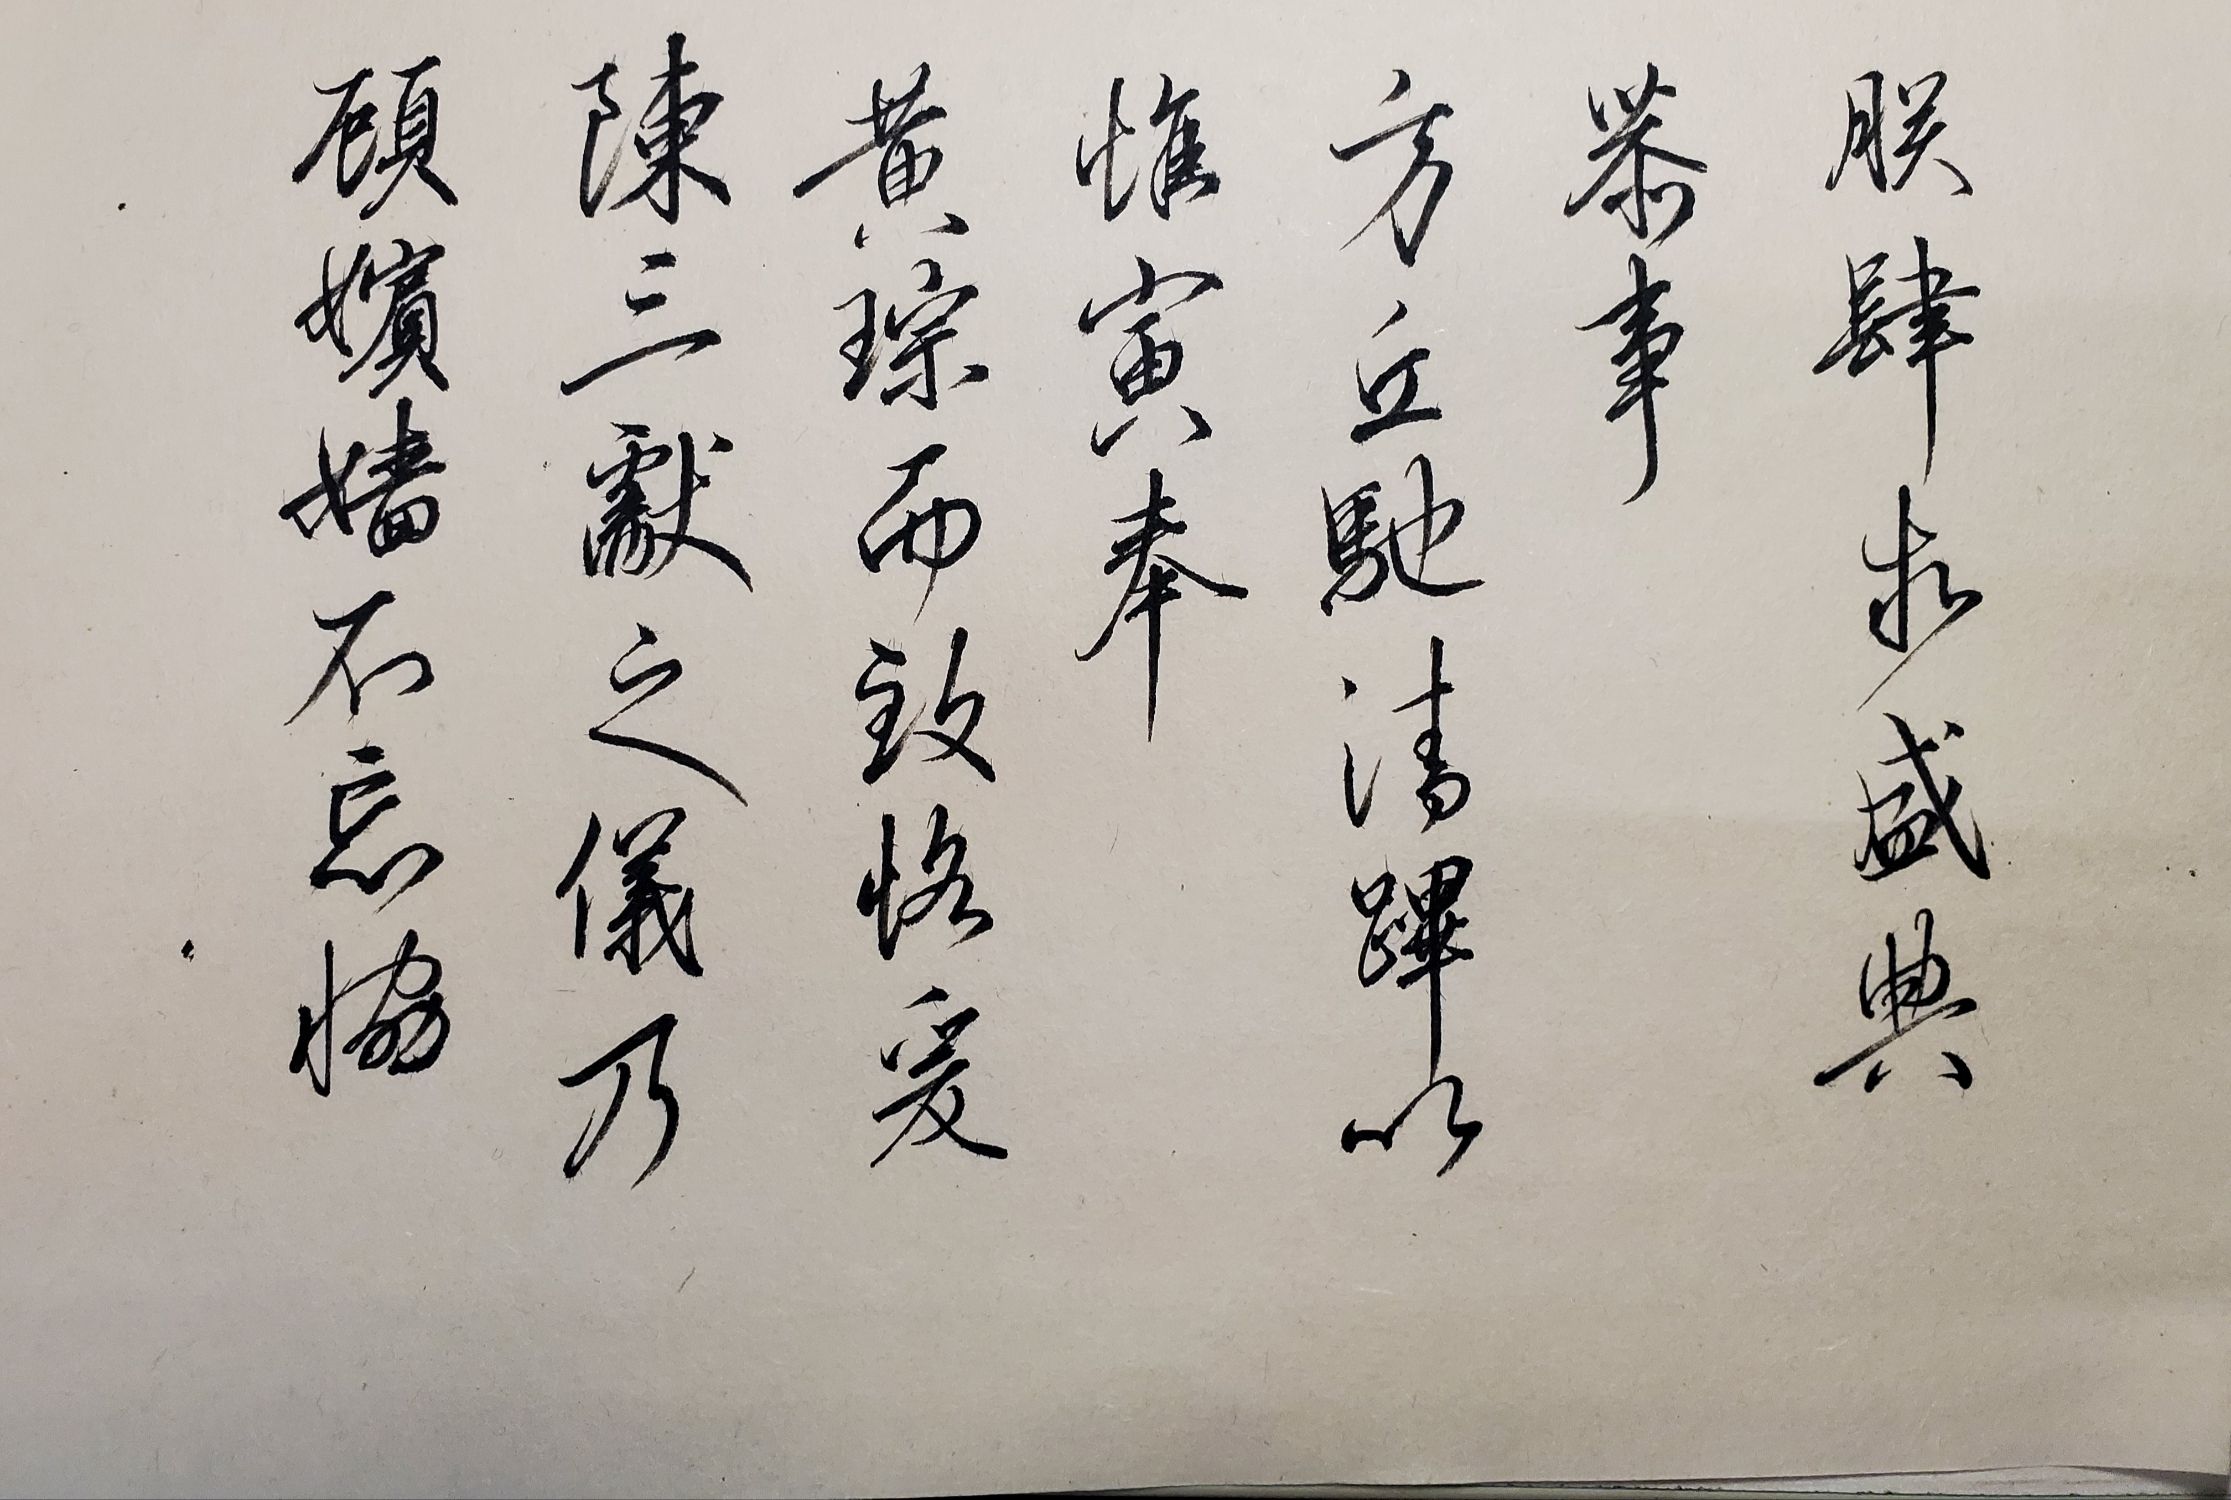 朕肆求盛典
恭事
方丘馳清蹕以
惟寅奉
黃琮而致恪爰
陳三獻之儀乃
顧嬪嬙不忘恊